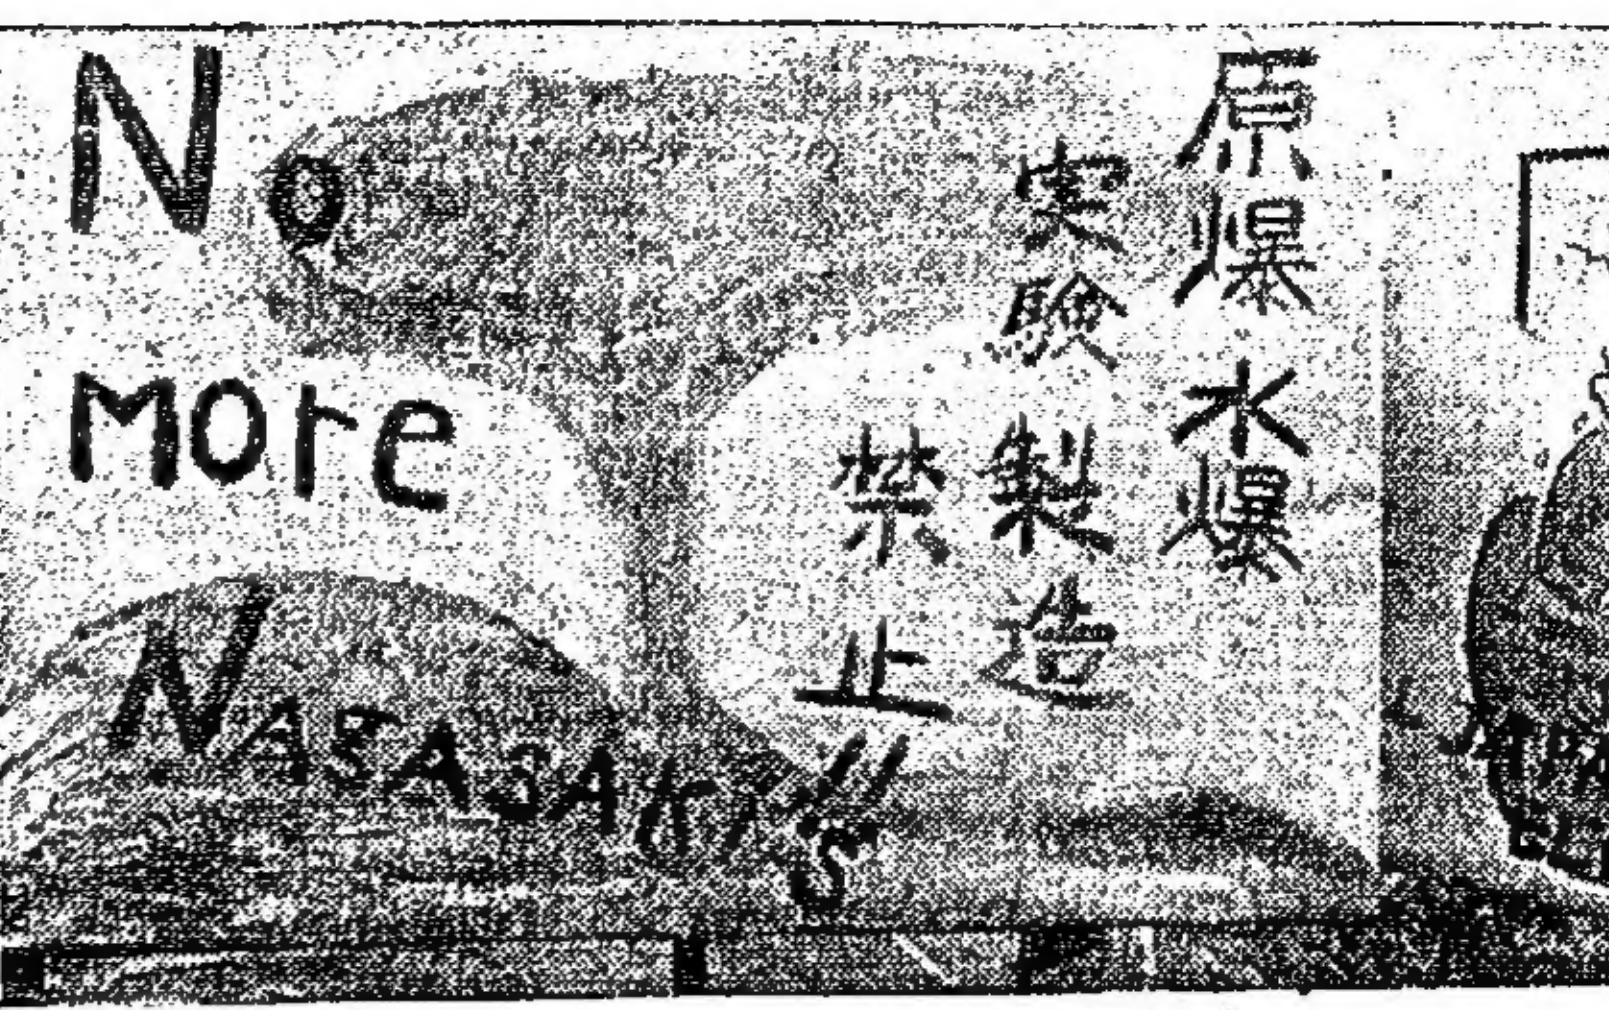 No
more
NAGASAKI'S
原爆 水爆
実験 製造
禁止!!